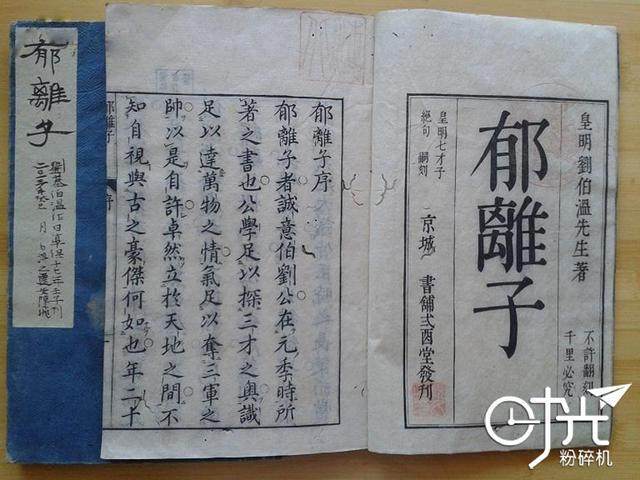 皇明劉伯溫先生著
郁離子
不許翻刻
千里必究
皇明七才子
絕句 嗣刻
京城 書舖弍酉堂發刊
郁離子序
郁離子者誠意伯劉公在元季時所
著之書也公學足以探三才之奧識
足以達萬物之情氣足以奪三軍之
帥以是自許卓然立於天地之間不
知自視與古之豪傑何如也年二十
郁離子
序
郁離子
劉基伯溫作日享保十七年壬子刊
时光
粉碎机